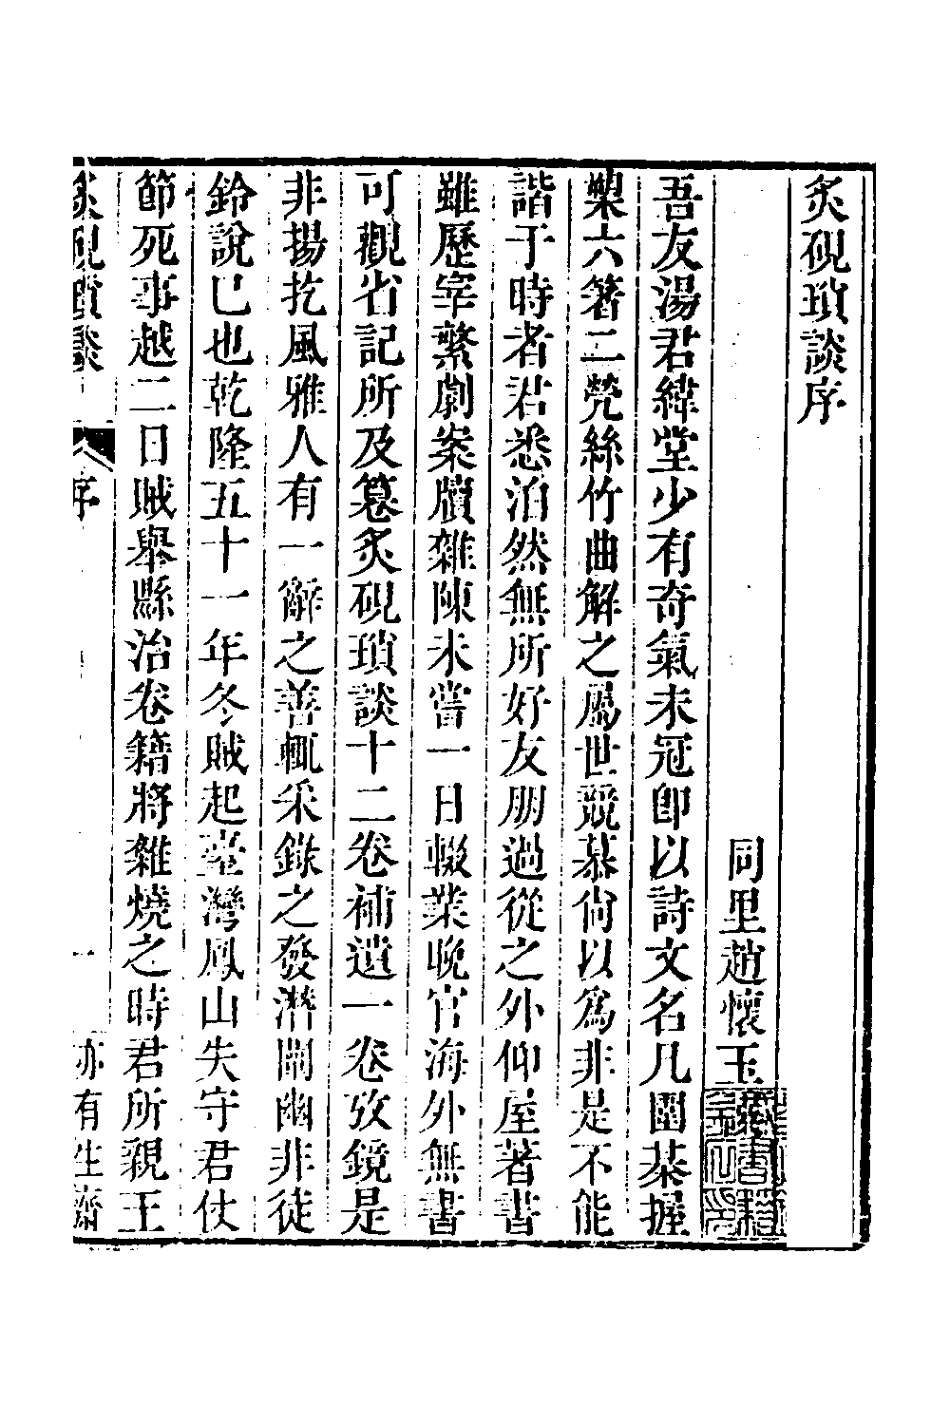 炙硯瑣談序
同里趙懷玉
吾友湯君緯堂少有奇氣未冠卽以詩文名凡圍棊握
槊六簙二煢絲竹曲解之屬世競慕尙以爲非是不能
諧于時者君悉泊然無所好友朋過從之外仰屋著書
雖歷宰繁劇案牘雜陳未嘗一日輟業晚官海外無書
可觀省記所及纂炙硯瑣談十二卷補遺一卷攷鏡是
非揚扢風雅人有一辭之善輒采錄之發潛闡幽非徒
鈴說已也乾隆五十一年冬賊起臺灣鳳山失守君仗
節死事越二日賊舉縣治卷籍將雜燒之時君所親王
炙硯瑣談
序
一
亦有生齋